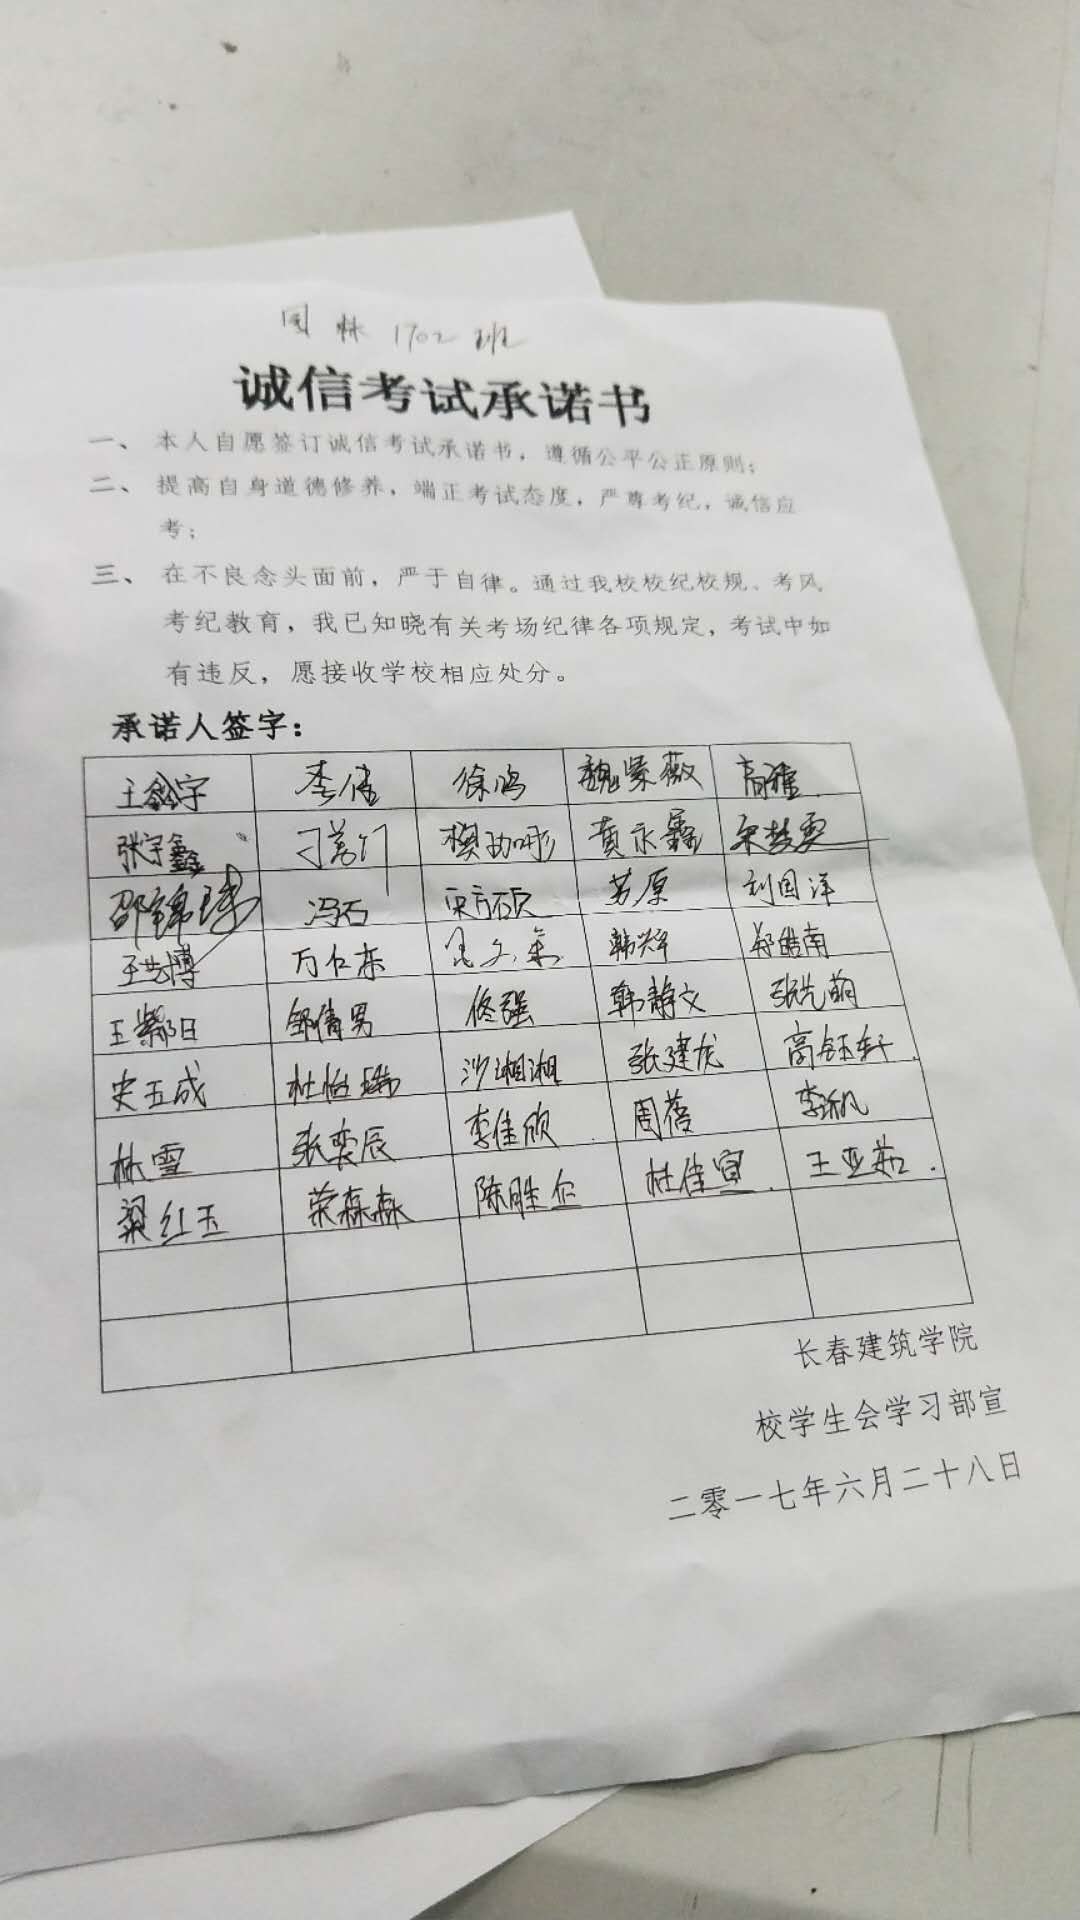 园林1702班
诚信考试承诺书
一、本人自愿签订诚信考试承诺书，遵循公平公正原则；
二、提高自身道德修养，端正考试态度，严尊考纪，诚信应
考；
三、在不良念头面前，严于自律。通过我校校纪校规、考风
考纪教育，我已知晓有关考场纪律各项规定，考试中如
有违反，愿接收学校相应处分。
承诺人签字：
李倩 徐鸿 魏紫薇 高雅
张宇鑫 黄永鑫 宋梦雯
邵锦瑞 冯石 刘国洋
王艺博 万仁东 韩兴华 郑皓南
邹倩男 佟强 韩静文 张先萌
史玉成 杜怡瑞 沙湘湘 张建龙 高钰轩
林雪 张奕辰 李佳欣 周蓓
梁红玉 荣森淼 陈胜企 杜佳宣 王亚茹
长春建筑学院
校学生会学习部宣
二零一七年六月二十八日